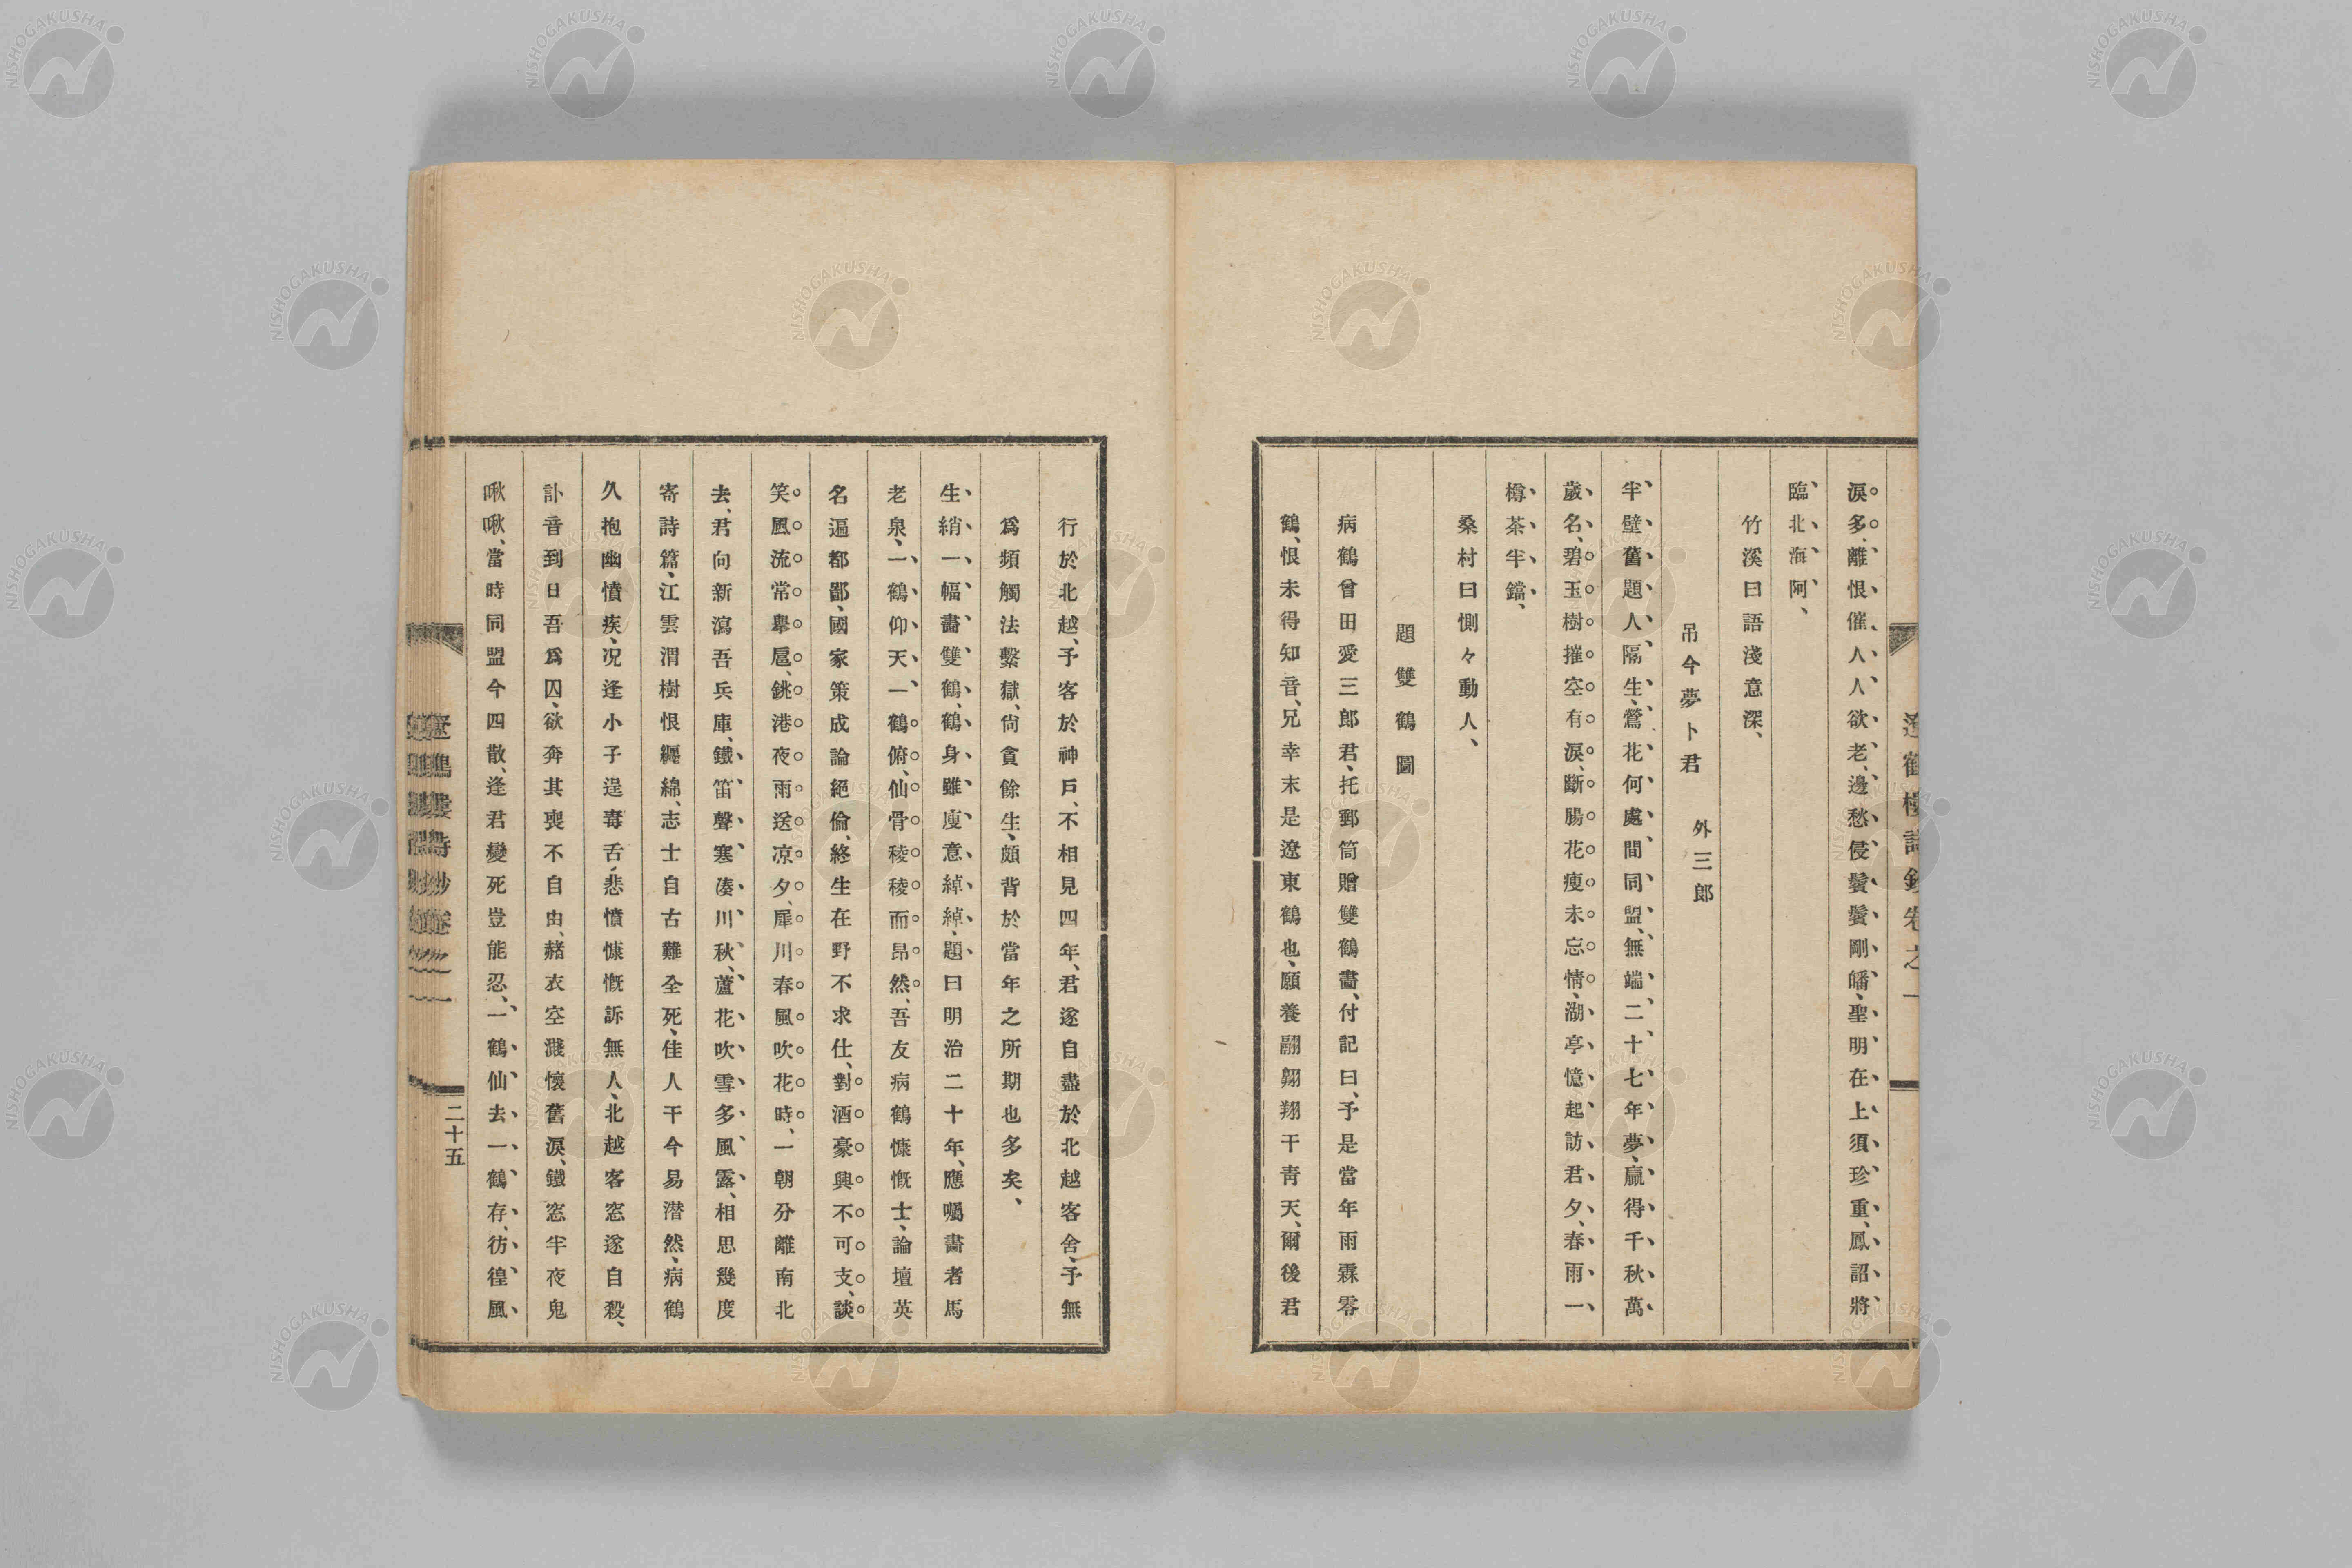 淚多、離恨催人人欲老、邊愁侵鬢鬢剛皤、聖明在上須珍重、鳳詔將
臨北海阿、
竹溪曰語淺意深、
吊今夢卜君 外三郎
半壁舊題人隔生、鶯花何處間同盟、無端二十七年夢、贏得千秋萬
歲名、碧玉樹摧空有淚、斷腸花瘦未忘情、湖亭憶起訪君夕、春雨一
樽茶半鐺、
桑村曰惻々動人、
題雙鶴圖
病鶴曾田愛三郎君、托郵筒贈雙鶴畵、付記曰、予是當年雨霖零
鶴、恨未得知音、兄幸末是遼東鶴也、願養翮翺翔干靑天、爾後君
行於北越、予客於神戶、不相見四年、君遂自盡於北越客舍、予無
爲頻觸法繫獄、尙貪餘生、頗背於當年之所期也多矣、
生綃一幅畵雙鶴、鶴身雖廋意綽綽、題曰明治二十年、應囑畵者馬
老泉、一鶴仰天一鶴俯、仙骨稜稜而昂然、吾友病鶴慷慨士、論壇英
名逼都鄙、國家策成論絕倫、終生在野不求仕、對酒豪興不可支、談
笑風流常擧扈、銚港夜雨送凉夕、犀川春風吹花時、一朝分離南北
去、君向新瀉吾兵庫、鐵笛聲寒湊川秋、蘆花吹雪多風露、相思幾度
寄詩篇、江雲渭樹恨纒綿、志士自古難全死、佳人干今易潜然、病鶴
久抱幽憤疾、况逢小子逞毒舌、悲憤慷慨訴無人、北越客窓遂自殺、
訃音到日吾爲囚、欲奔其喪不自由、赭衣空濺懷舊淚、鐵窓半夜鬼
啾啾、當時同盟今四散、逢君變死豈能忍、一鶴仙去一鶴存、彷徨風
二十五